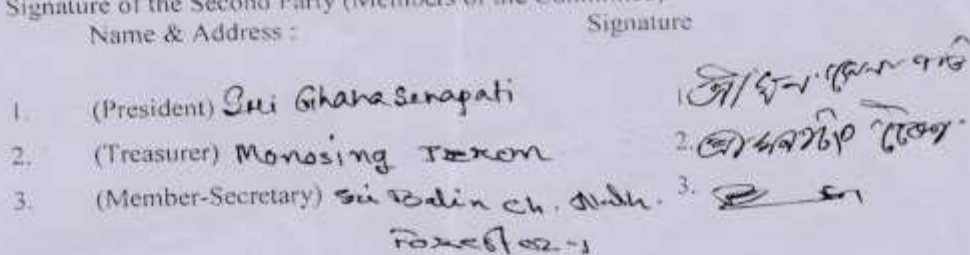 Signature of the Second Party (Members of the Committee)
Name & Address : Signature
1. (President) Sri Ghana Senapati 1. শ্ৰী ঘন সেনাপতি
2. (Treasurer) Monosing Teron 2.
3. (Member-Secretary) Sri Balin Ch. Nath. 3.
Forester-1